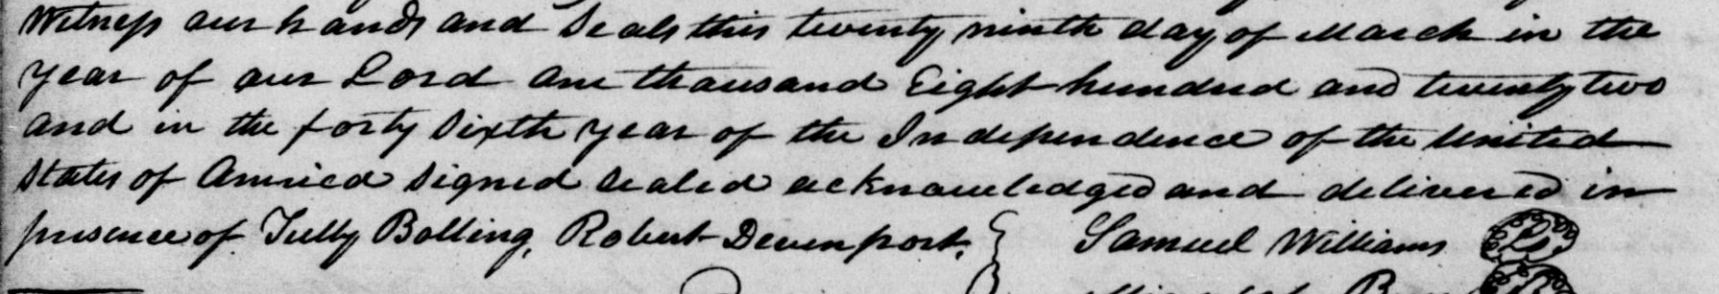 Witness our hands and Seals this twenty ninth day of March in the
year of our Lord one thousand Eight hundred and twenty two
and in the forty sixth year of the Independence of the United
States of America signed sealed acknowledged and delivered in
presence of Tully Bolling, Robert Devenport. Samuel Williams